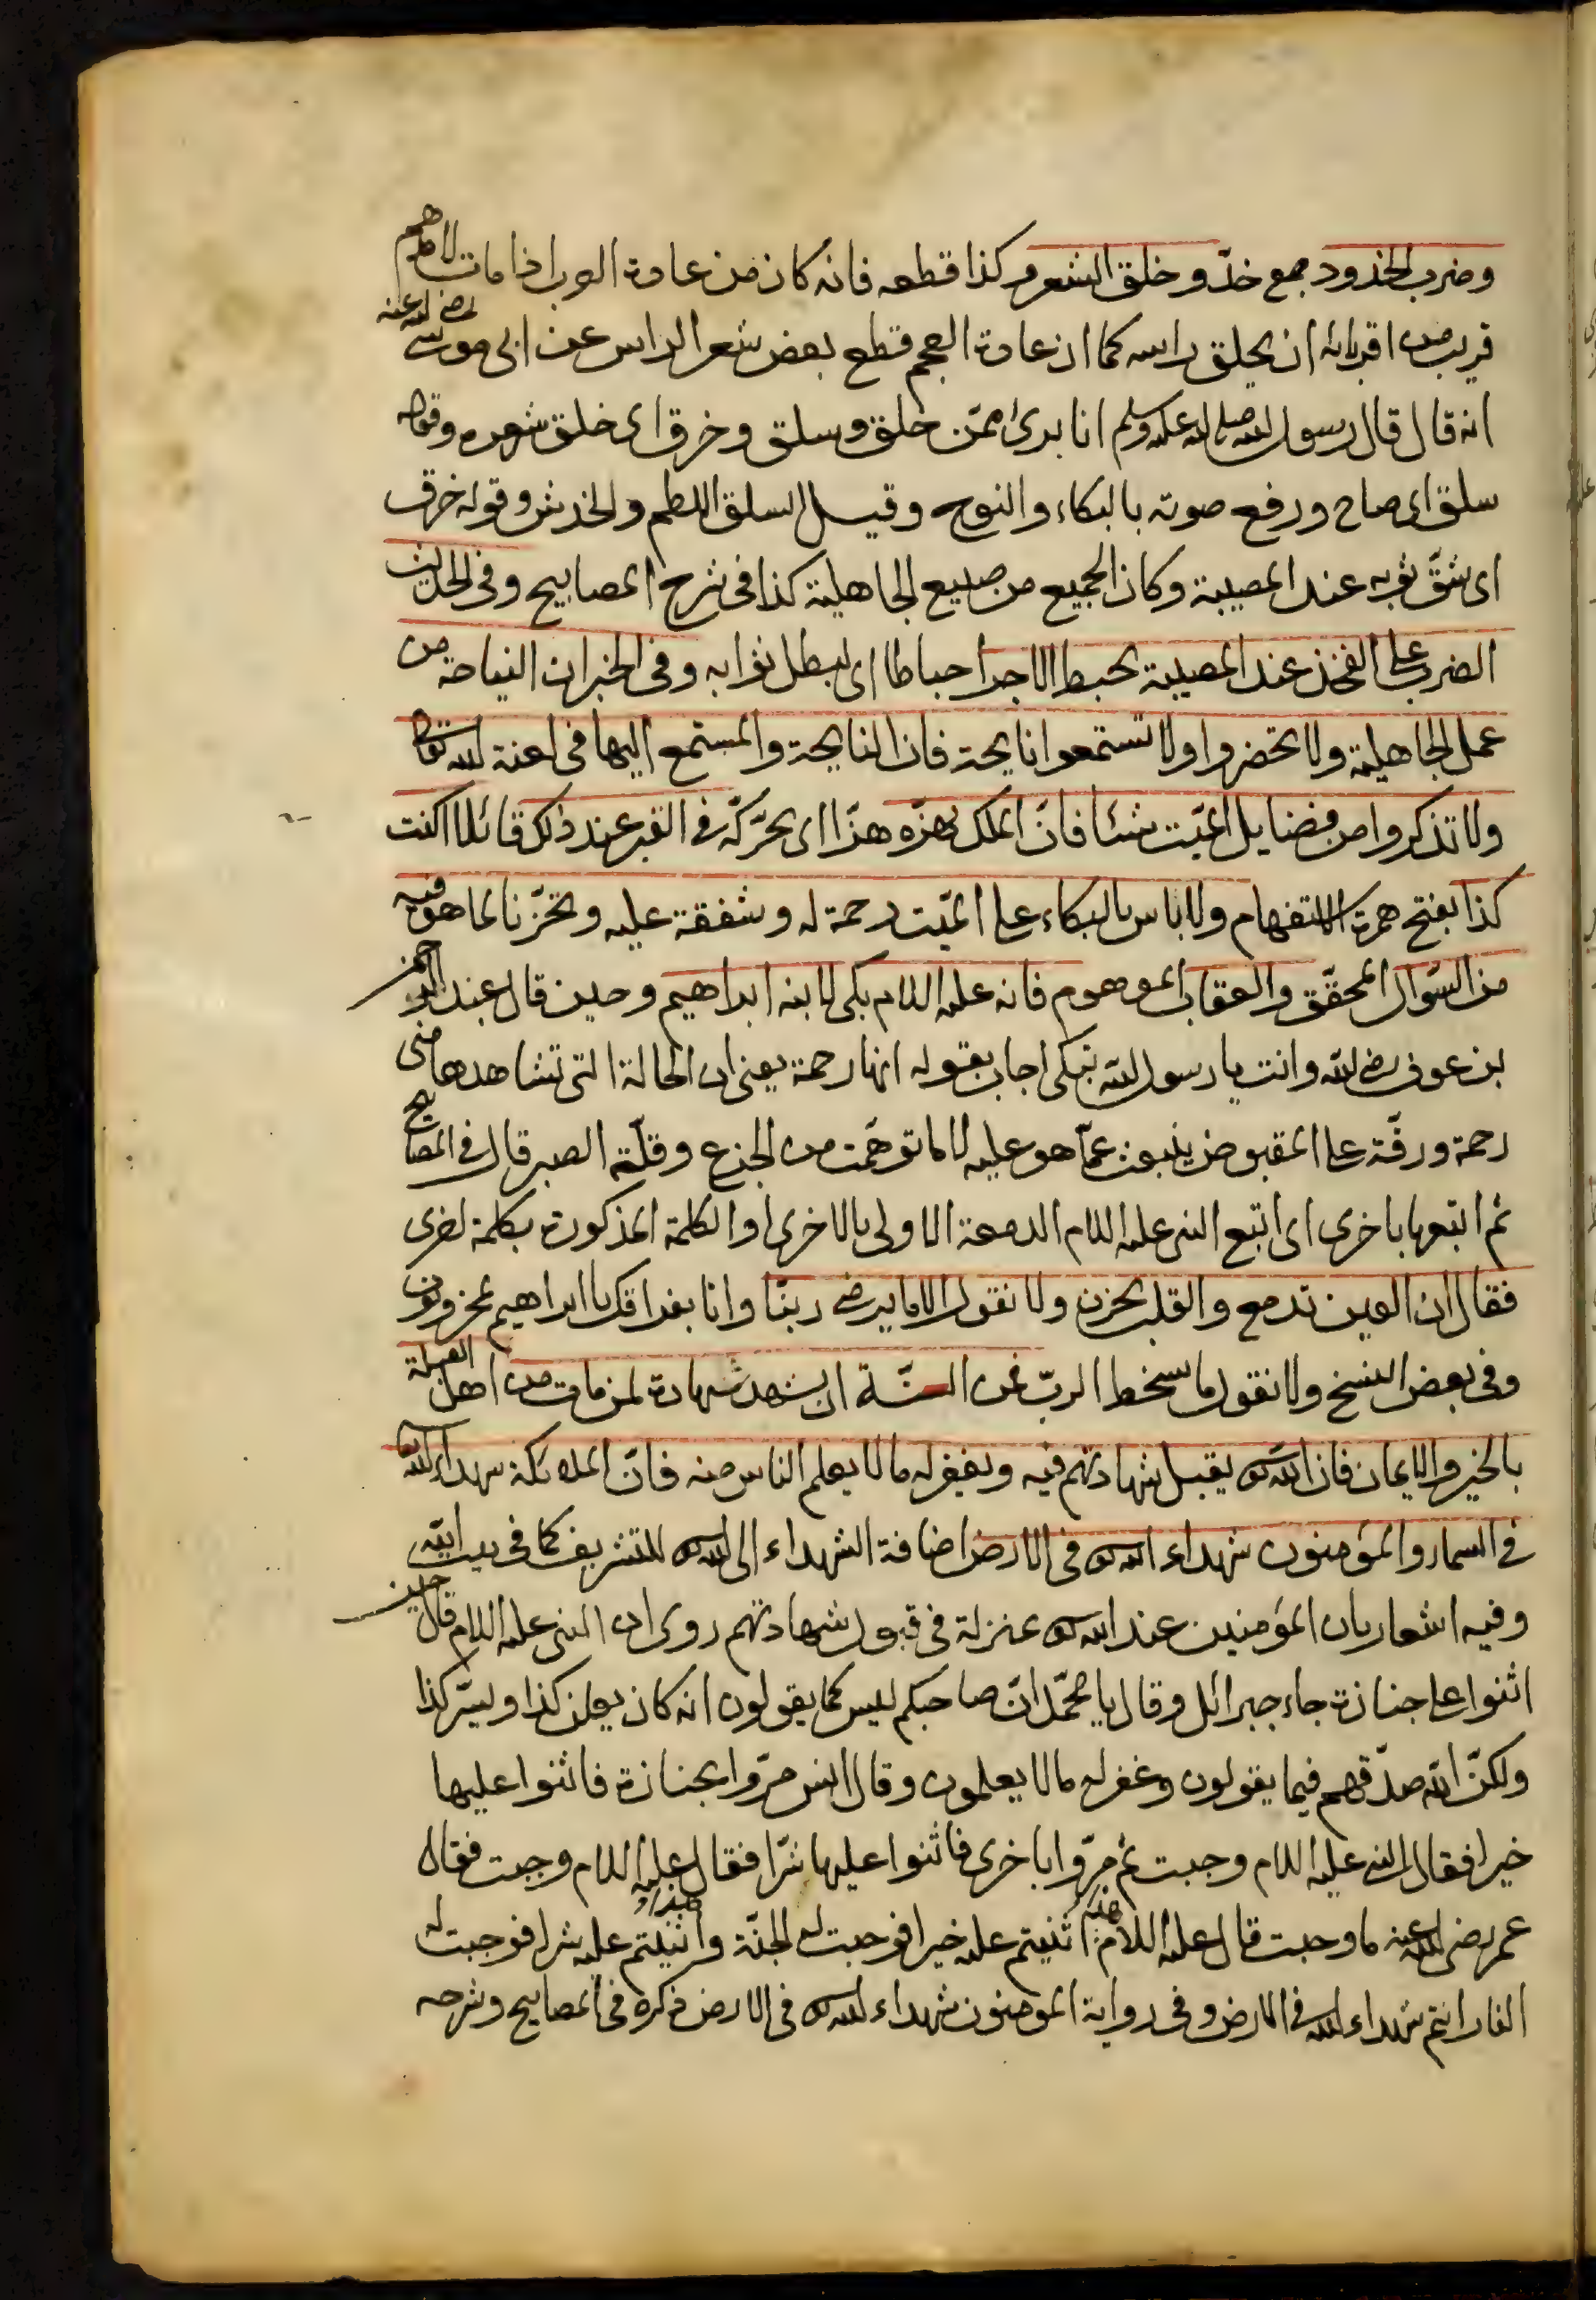 وضرب الخدود جمع خدّ وخلق الشعر وكذا قطعه فانه كان من عادة العرب اذا مات لاحدهم
قريب من اقربائه ان يحلق راسه كما ان عادة العجم قطع بعض شعر الراس عن ابى موسى رضى الله عنه
انه قال قال رسول الله صلى الله عليه وسلم انا برئ ممّن خلق وسلق وخرق اى خلق شعره وقوله
سلق اى صاح ورفع صوته بالبكاء والنوح وقيل السلق اللطم والخدش وقوله خرق
اى شقّ ثوبه عند المصيبة وكان الجميع من صنيع الجاهلية كذا فى شرح المصابيح وفى الحديث
الضرب على الفخذ عند المصيبة يحبط الاجر احباطا اى يبطل ثوابه وفى الخبر ان النياحة من
عمل الجاهلية ولا تحضروا ولا تستمعوا نايحة فان النايحة والمستمع اليها فى لعنة الله تعالى
ولا تذكروا من فضايل الميّت شئا فانّ الملك يهزّه هزّا اى يحرّكه فى القبر عند ذلك قائلا اكنت
كذا بفتح همزة الاستفهام ولا باس بالبكاء على الميّت رحمة له وشفقة عليه وتحزّنا لما هو فيه
من السّؤال المحقّق والعقاب الموهوم فانه عليه السلام بكى لابنه ابراهيم وحين قال عبد الرحمن
بن عوف رضى الله وانت يا رسول الله تبكى اجاب بقوله انها رحمة يعنى ان الحالة التى تشاهدها منى
رحمة ورقّة على المقبوض ينبعث عمّا هو عليه لا ما توهّمت من الجزع وقلّة الصبر قال فى المصابيح
ثم اتبعها باخرى اى اتبع النبى عليه السلام الدمعة الاولى بالاخرى او الكلمة المذكورة بكلمة اخرى
فقال ان العين تدمع والقلب يحزن ولا نقول الا ما يرضى ربنّا وانا بفراقك يا ابراهيم لمحزونون
وفى بعض النسخ ولا نقول ما يسخط الربّ فمن السنّة ان يشهد شهادة لمن مات من اهل القبلة
بالخير والايمان فان الله تعالى يقبل شهادتهم فيه ويغفر له ما لا يعلم الناس منه فانّ الملائكة شهداء الله تعالى
فى السماء والمؤمنون شهداء الله تعالى فى الارض اضافة الشهداء الى الله تعالى للتشريف كما فى بيت الله
وفيه اشعار بان المؤمنين عند الله تعالى بمنزلة فى قبول شهادتهم روى ان النبى عليه السلام قال حين
اثنوا على جنازة جاء جبرائل وقال يا محمّد انّ صاحبكم ليس كما يقولون انه كان يعلن كذا ويسرّ كذا
ولكنّ الله صدّقهم فيما يقولون وغفر له ما لا يعلمون وقال انس مرّوا بجنازة فاثنوا عليها
خيرا فقال النبى عليه السلام وجبت ثم مرّوا باخرى فاثنوا عليها شرّا فقال عليه السلام وجبت فقال
عمر رضى الله عنه ما وجبت قال عليه السلام هذا اثنيتم عليه خيرا فوجبت له الجنّة وهذا اثنيتم عليه شرا فوجبت له
النار انتم شهداء الله فى الارض وفى رواية المؤمنون شهداء الله تعالى فى الارض ذكره فى المصابيح وشرحه